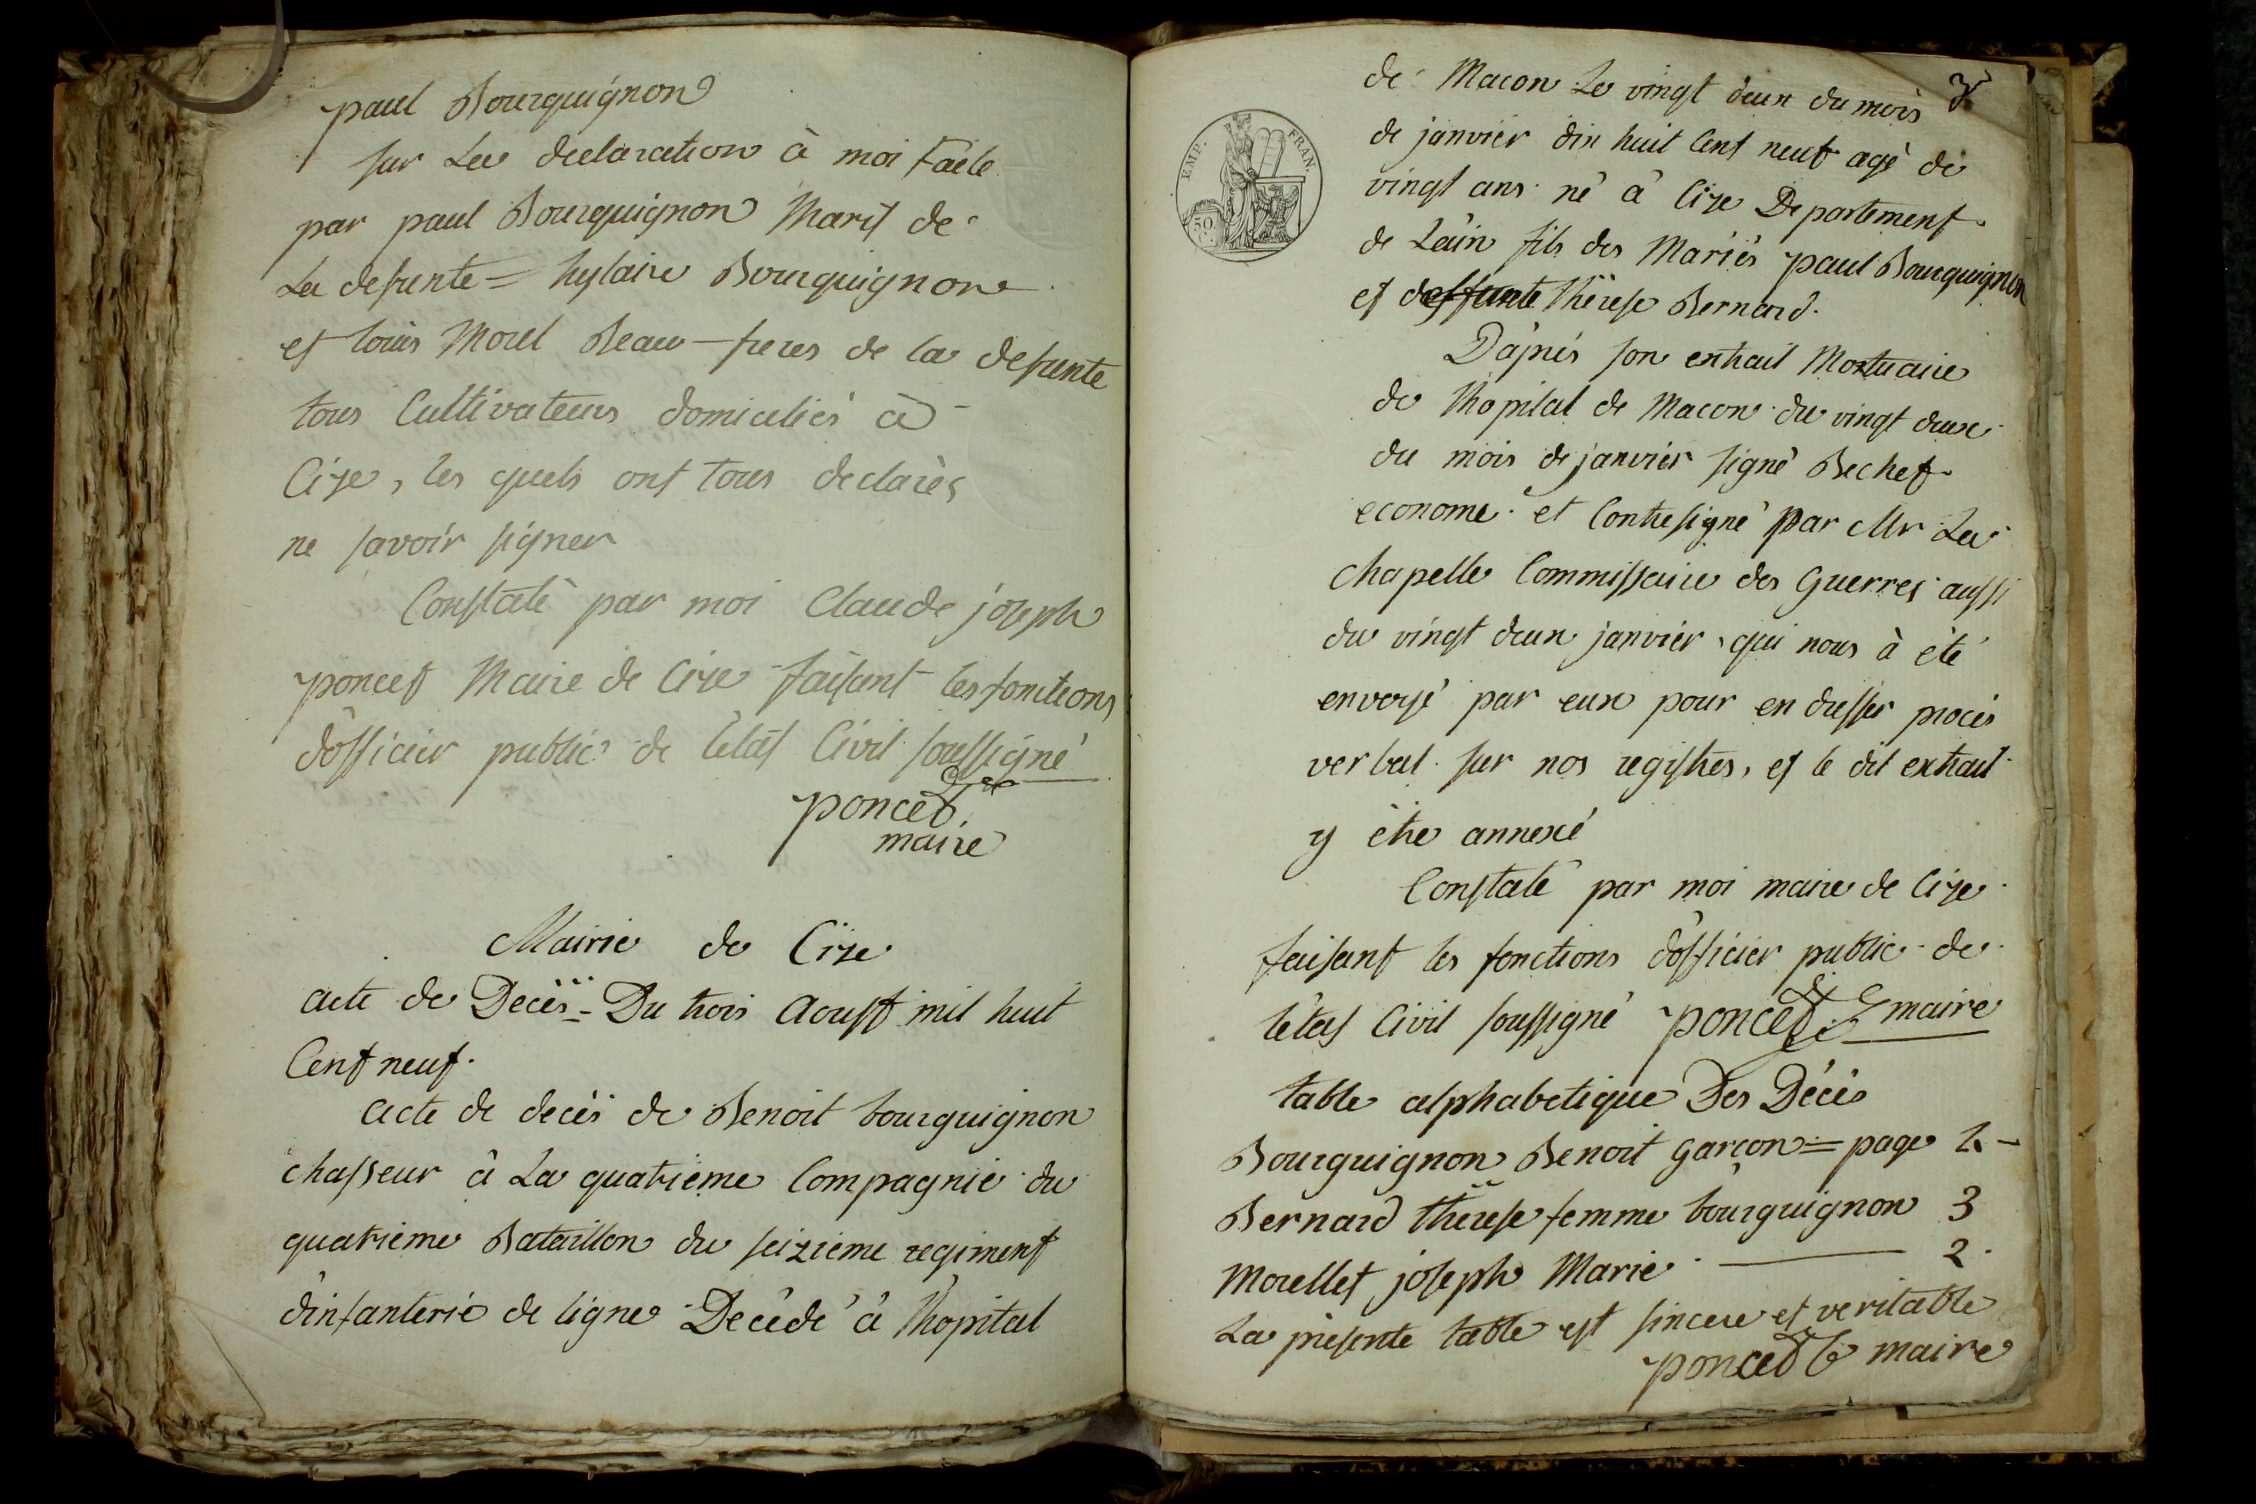 paul Bourguignon
sur La declaration à moi Faite
par paul Bourguignon Marit de
La defunte = hylaire Bourguignon
et louis Morel Beau-freres de la defunte
tous Cultivateurs domiciliés à
Cize, les quels ont tous declarès
ne savoir signer
Constaté par moi Claude joseph
poncet Maire de Cize faisant les fonctions
d'officier public de l'etat Civil soussigné
poncet
maire
Mairie de Cize
acte de Decès - Du trois Aoust mil huit
Cent neuf.
acte de decès de Benoit bourguignon
chasseur à La quatrieme Compagnie du
quatrieme Bataillon du seizieme regiment
d'infanterie de ligne Decédé à l'hopital
3
de Macon Le vingt deux du mois
de janvier dix huit Cent neuf agé de
vingt ans né à Cize Departement
de L'ain fils des Mariés paul Bourguignon
et deffunte Thérese Bernard.
D'aprés son extrait Mortuaire
de l'hopital de Macon du vingt deux
du mois de janvier signé Bechet
econome et Contresigné par Mr La
chapelle Commissaire des Guerres aussi
du vingt deux janvier, qui nous à été
envoyé par eux pour en dresser procés
verbal sur nos registres, et le dit extrait
y être annexé
Constaté par moi maire de Cize
faisant les fonctions d'officier public de
l'état Civil soussigné poncet maire
table alphabetique Des Décés
Bourguignon Benoit garçon = page 2 -
Bernard thérese femme bourguignon 3
Morellet joseph Marie 2
La présente table est sincere et veritable
poncet maire
EMP. FRAN.
50